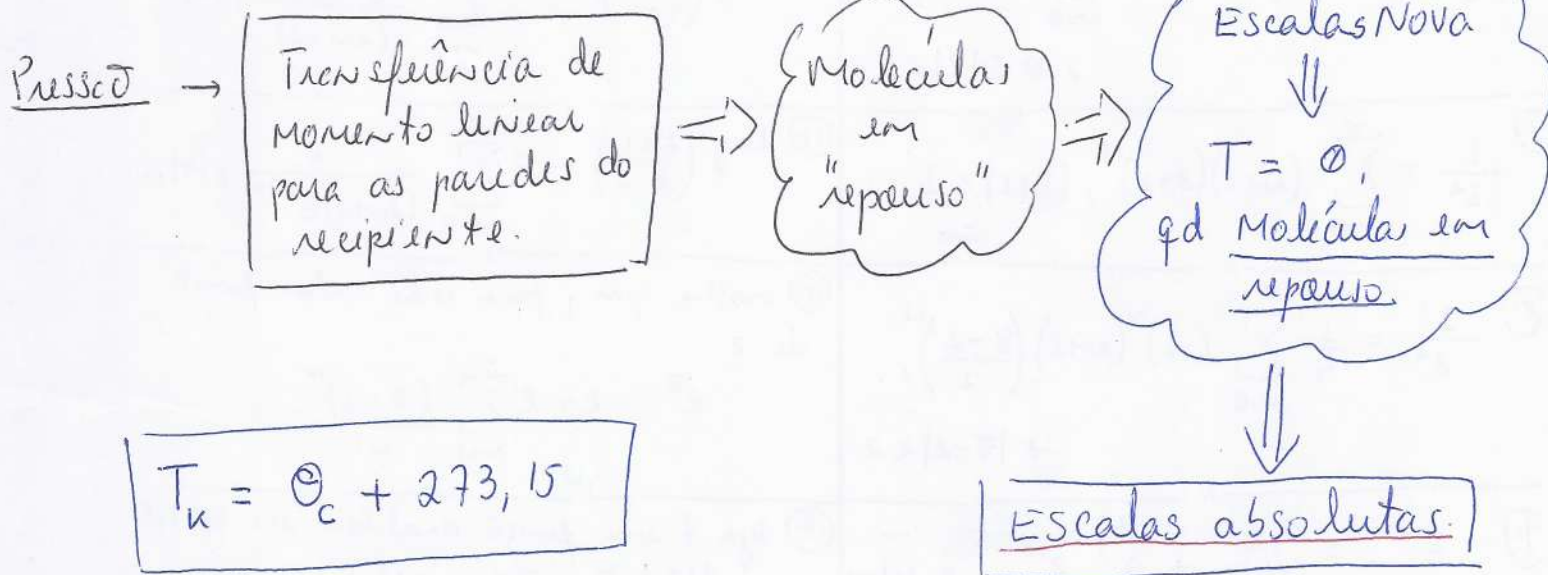 Pressão →
Transferência de
momento linear
para as paredes do
recipiente.
⇒
Moléculas
em
"repouso"
⇒
Escalas Nova
⇓
T = 0,
qd Moléculas em
repouso.
⇓
T_K = Θ_C + 273,15
Escalas absolutas.